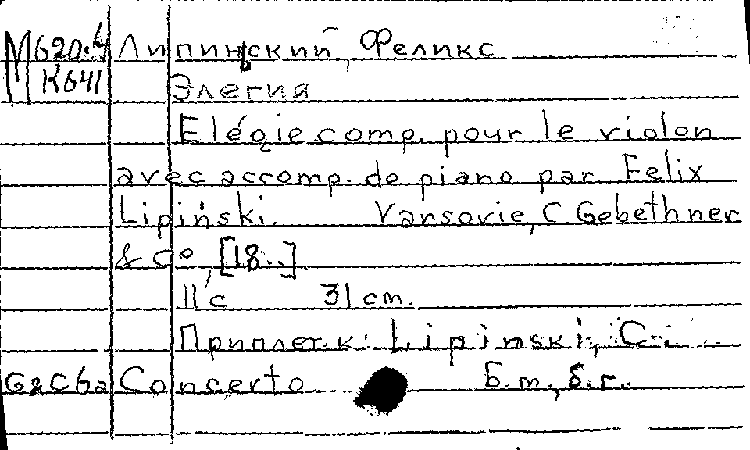 М620.4 Липинский, Феликс
К641 Элегия
Elégie comp. pour le violon
avec accomp. de piano par Felix
Lipiński. Varsovie, C Gebethner
& Co, [18..]
11 с 31 cm.
Приплет. к: Lipinski, C.
Concerto Б.м., б.г.